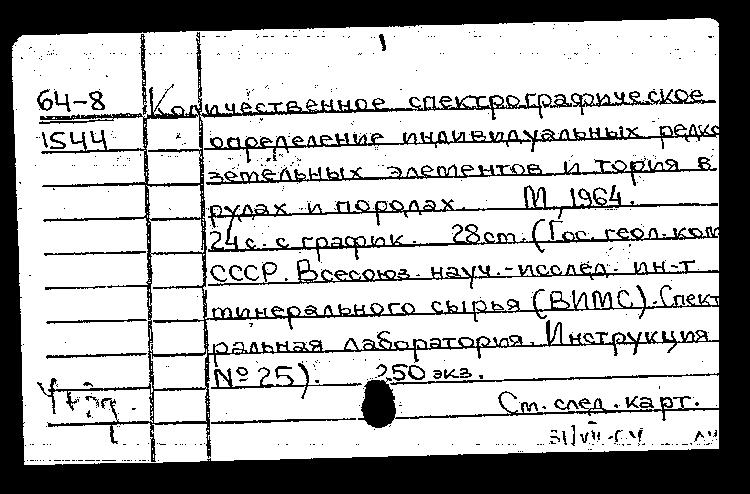 64-8 Количественное спектрографическое
1544 определение индивидуальных редко
земельных элементов и тория в
рудах и породах. М, 1964.
24 с. с график. 28 ст. (Гос. геол. ком
СССР. Всесоюз. науч.-исслед. ин-т
минерального сырья (ВИМС). Спект
ральная лаборатория. Инструкция
№ 25). 250 экз.
См. след. карт.